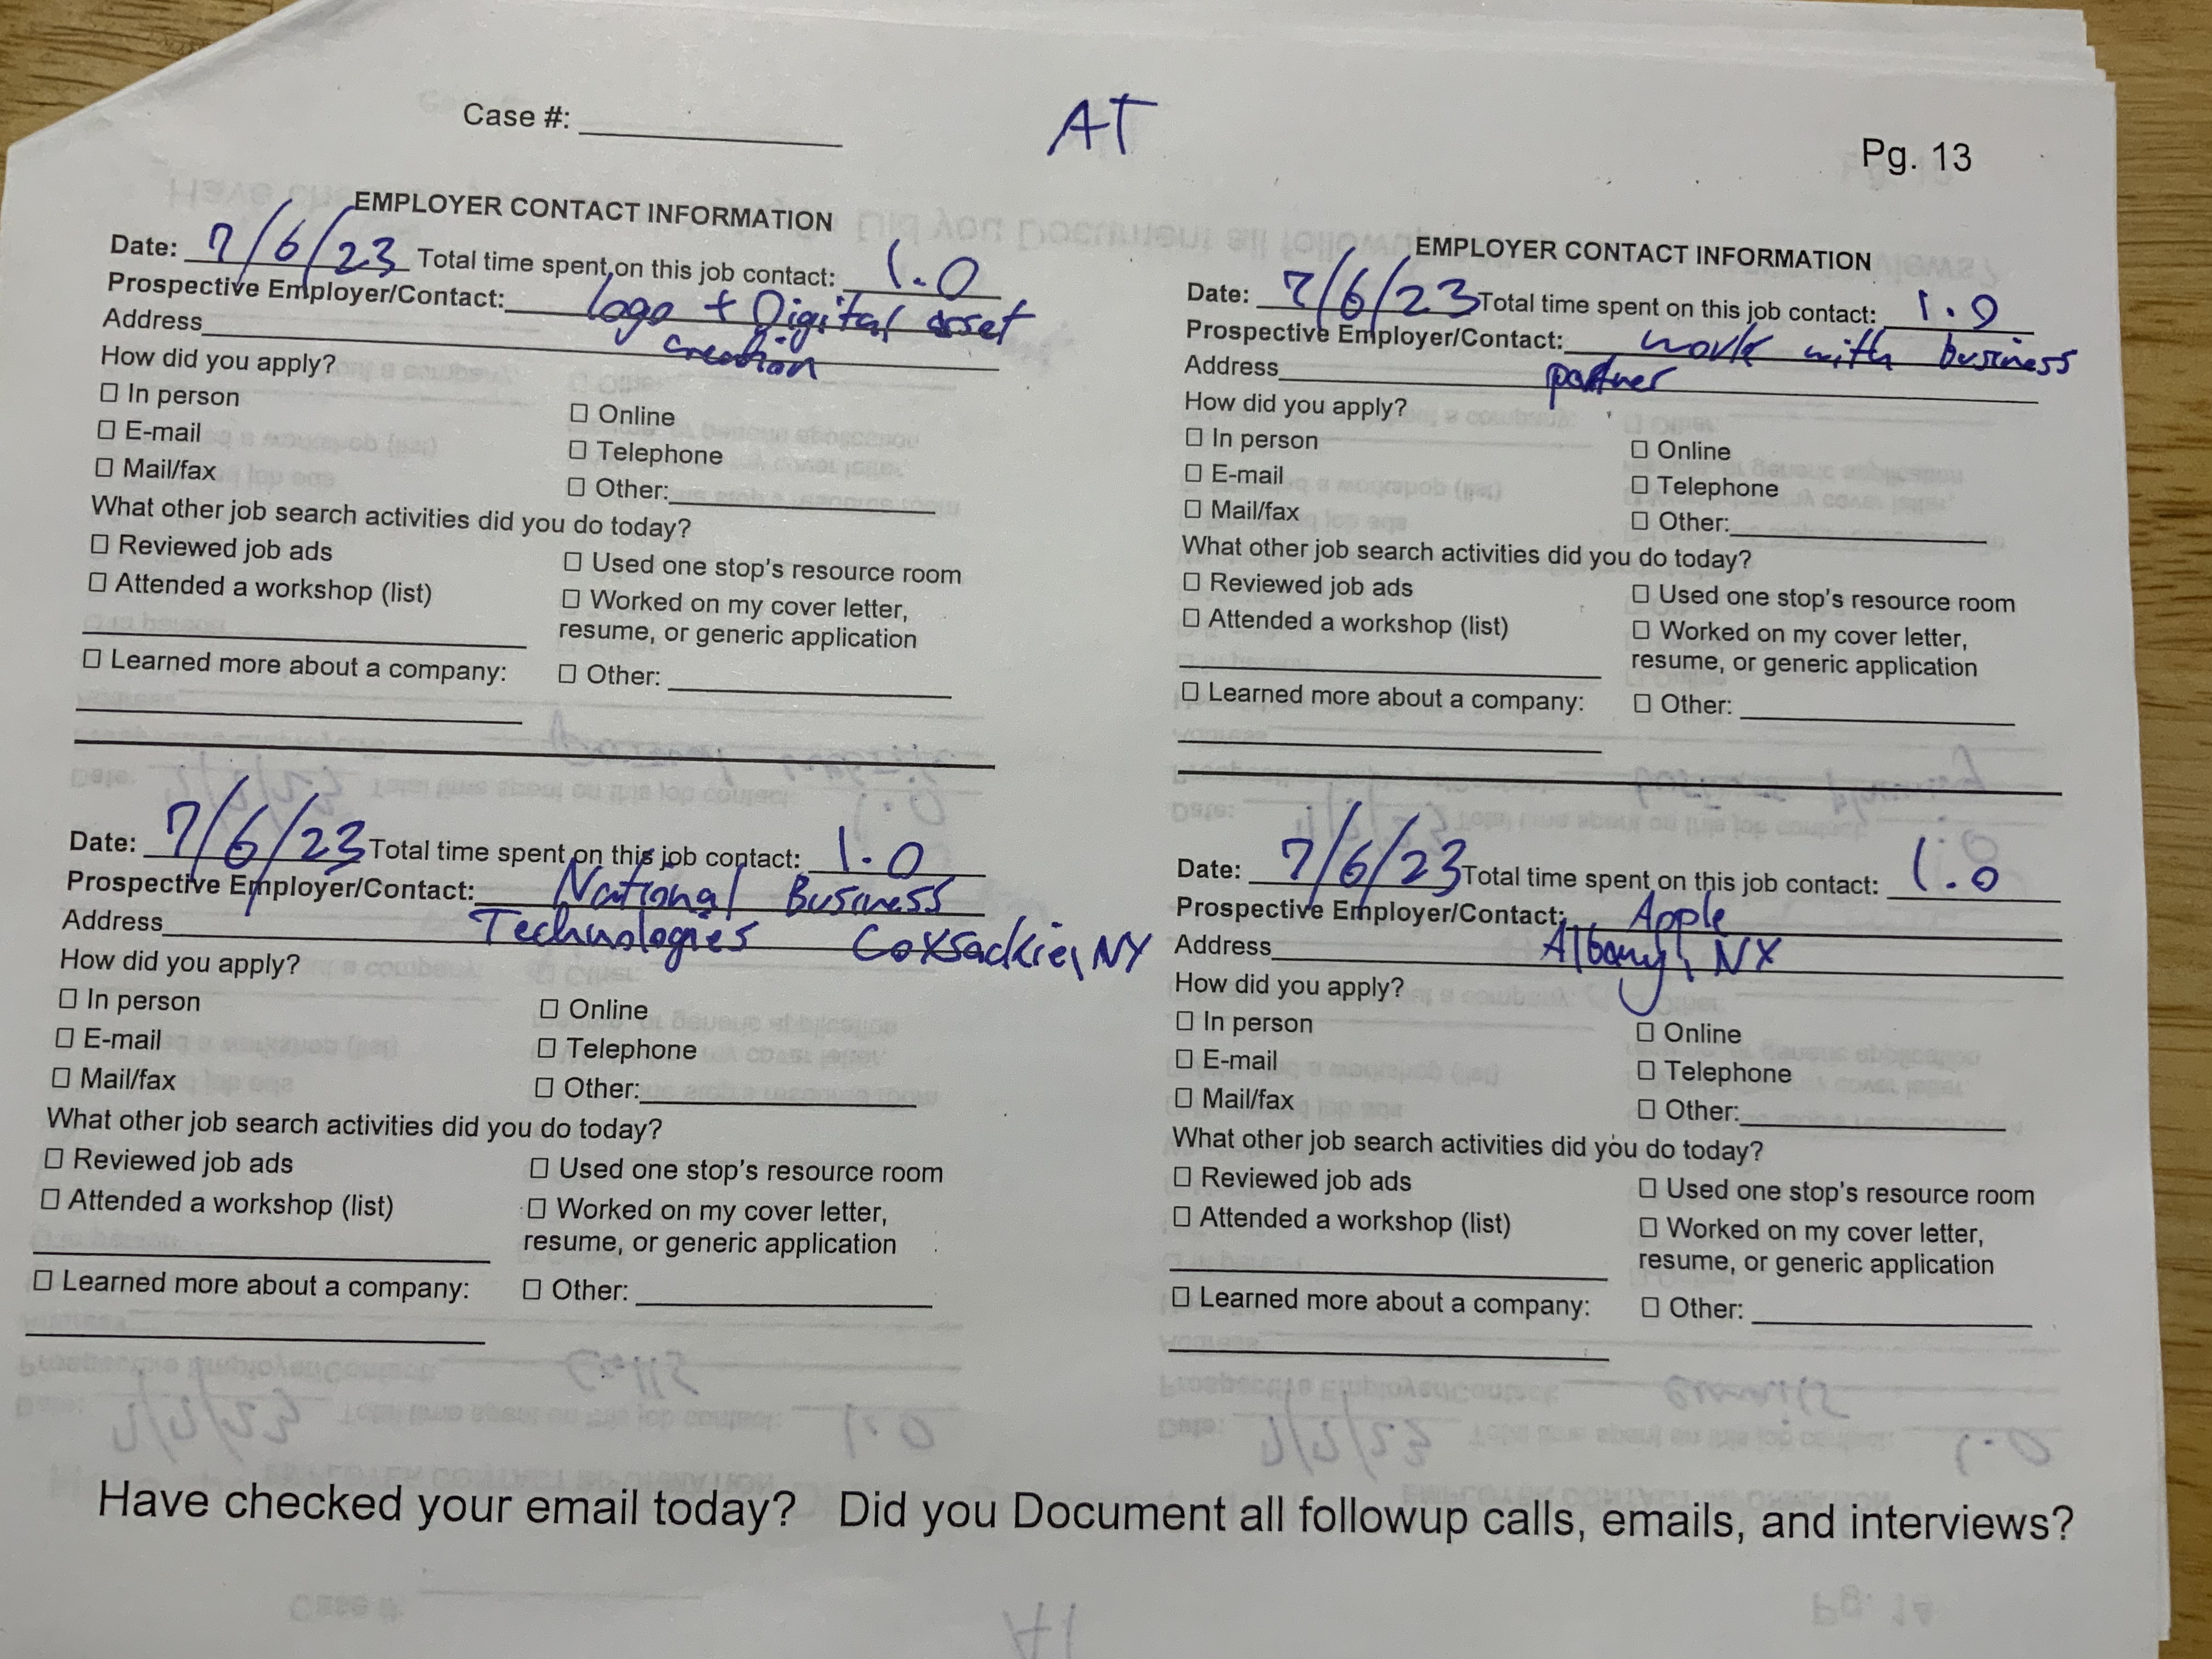 Case #:
AT
Pg. 13
EMPLOYER CONTACT INFORMATION
Date: 7/6/23 Total time spent on this job contact: 1.0
Prospective Employer/Contact: logo + Digital asset
Address creation
How did you apply?
☐ In person
☐ Online
☐ E-mail
☐ Telephone
☐ Mail/fax
☐ Other:
What other job search activities did you do today?
☐ Reviewed job ads
☐ Used one stop's resource room
☐ Attended a workshop (list)
☐ Worked on my cover letter,
resume, or generic application
☐ Learned more about a company:
☐ Other:
EMPLOYER CONTACT INFORMATION
Date: 7/6/23 Total time spent on this job contact: 1.0
Prospective Employer/Contact: work with business
Address partner
How did you apply?
☐ In person
☐ Online
☐ E-mail
☐ Telephone
☐ Mail/fax
☐ Other:
What other job search activities did you do today?
☐ Reviewed job ads
☐ Used one stop's resource room
☐ Attended a workshop (list)
☐ Worked on my cover letter,
resume, or generic application
☐ Learned more about a company:
☐ Other:
Date: 7/6/23 Total time spent on this job contact: 1.0
Prospective Employer/Contact: National Business
Address Technologies Coxsackie, NY
How did you apply?
☐ In person
☐ Online
☐ E-mail
☐ Telephone
☐ Mail/fax
☐ Other:
What other job search activities did you do today?
☐ Reviewed job ads
☐ Used one stop's resource room
☐ Attended a workshop (list)
☐ Worked on my cover letter,
resume, or generic application
☐ Learned more about a company:
☐ Other:
Date: 7/6/23 Total time spent on this job contact: 1.0
Prospective Employer/Contact: Apple
Address Albany, NY
How did you apply?
☐ In person
☐ Online
☐ E-mail
☐ Telephone
☐ Mail/fax
☐ Other:
What other job search activities did you do today?
☐ Reviewed job ads
☐ Used one stop's resource room
☐ Attended a workshop (list)
☐ Worked on my cover letter,
resume, or generic application
☐ Learned more about a company:
☐ Other:
Have checked your email today? Did you Document all followup calls, emails, and interviews?